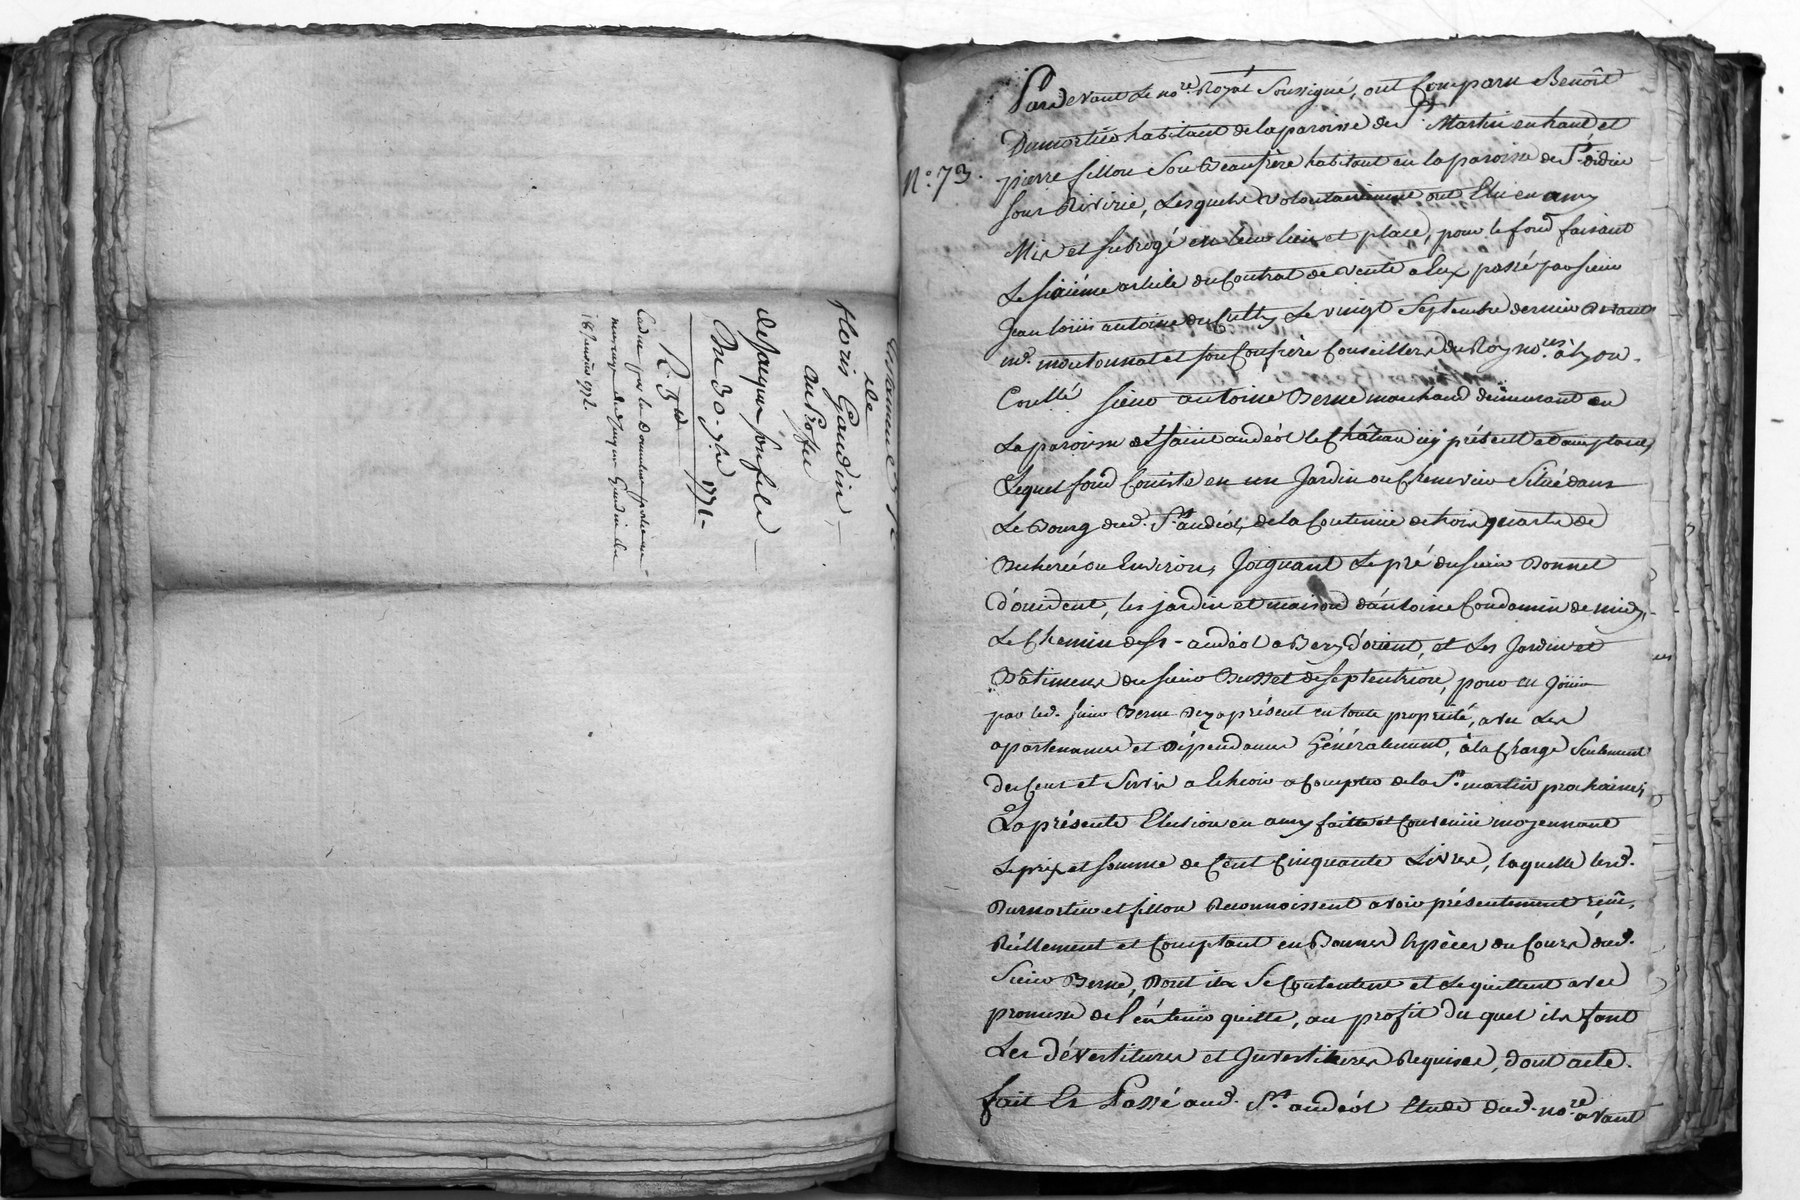 de
floris Gaudin
au Profit
de Jacques son fils
Du 30. 7bre 1771.
R. 3#
1772.
N.° 73.
Pardevant Le no.re Royal Soussigné, ont Comparu Benoît
Dumortier habitant de la paroisse de St. Martin en haut et
pierre fillon Son Beaufrère habitant en la paroisse de St. didier
Sous Riverie, Lesquels volontairement ont Elu en amy
Mis et subrogé en leur lieu et place, pour le fond faisant
Le sixiéme article du Contrat de vente a Eux passé par sieur
Jean louis antoine du Culty Le vingt Septembre dernier devant
me. moutonnat et son Confrère Conseillers du Roy no.res à Lyon.
Conllé Sieur antoine Berne marchand demeurant en
La paroisse de saint andéol le Château icy présent et acceptant,
Lequel fond Consiste en un Jardin ou Chenevier Situé dans
Le Bourg dud. St. andéol, de la Contenüe de trois quarts de
Bicherée ou Environ, Joignant Le pré du sieur Bonnet
d'occident, les jardin et maison d'antoine Condamin de midy,
Le Chemin de St. andéol a Bery d'orient, et Les Jardin et
Bâtimens du sieur Busset de Septentrion, pour en Jouir
par led. sieur Berne Dez a présent en toute propriété, avec Les
apartenances et dépendances Généralement, à la Charge Seulement
des Cens et Servis a Echeoir a Compter de la St. martin prochaine;
La présente Election en amy faitte et Convenüe moyennant
Le prix et somme de Cent Cinquante Livres, laquelle lesd.
Dumortier et fillon Reconnoissent avoir présentement reçû,
Réellement et Comptant en Bonnes Espèces du Cours dud.
Sieur Berne, Dont ils Se Contentent et Le quittent avec
promesse de l'en tenir quitte, au profit du quel ils font
Les dévestitures et Investitures Requises, dont acte.
fait Et Passé aud. St. andéol Etude dud. no.re avant